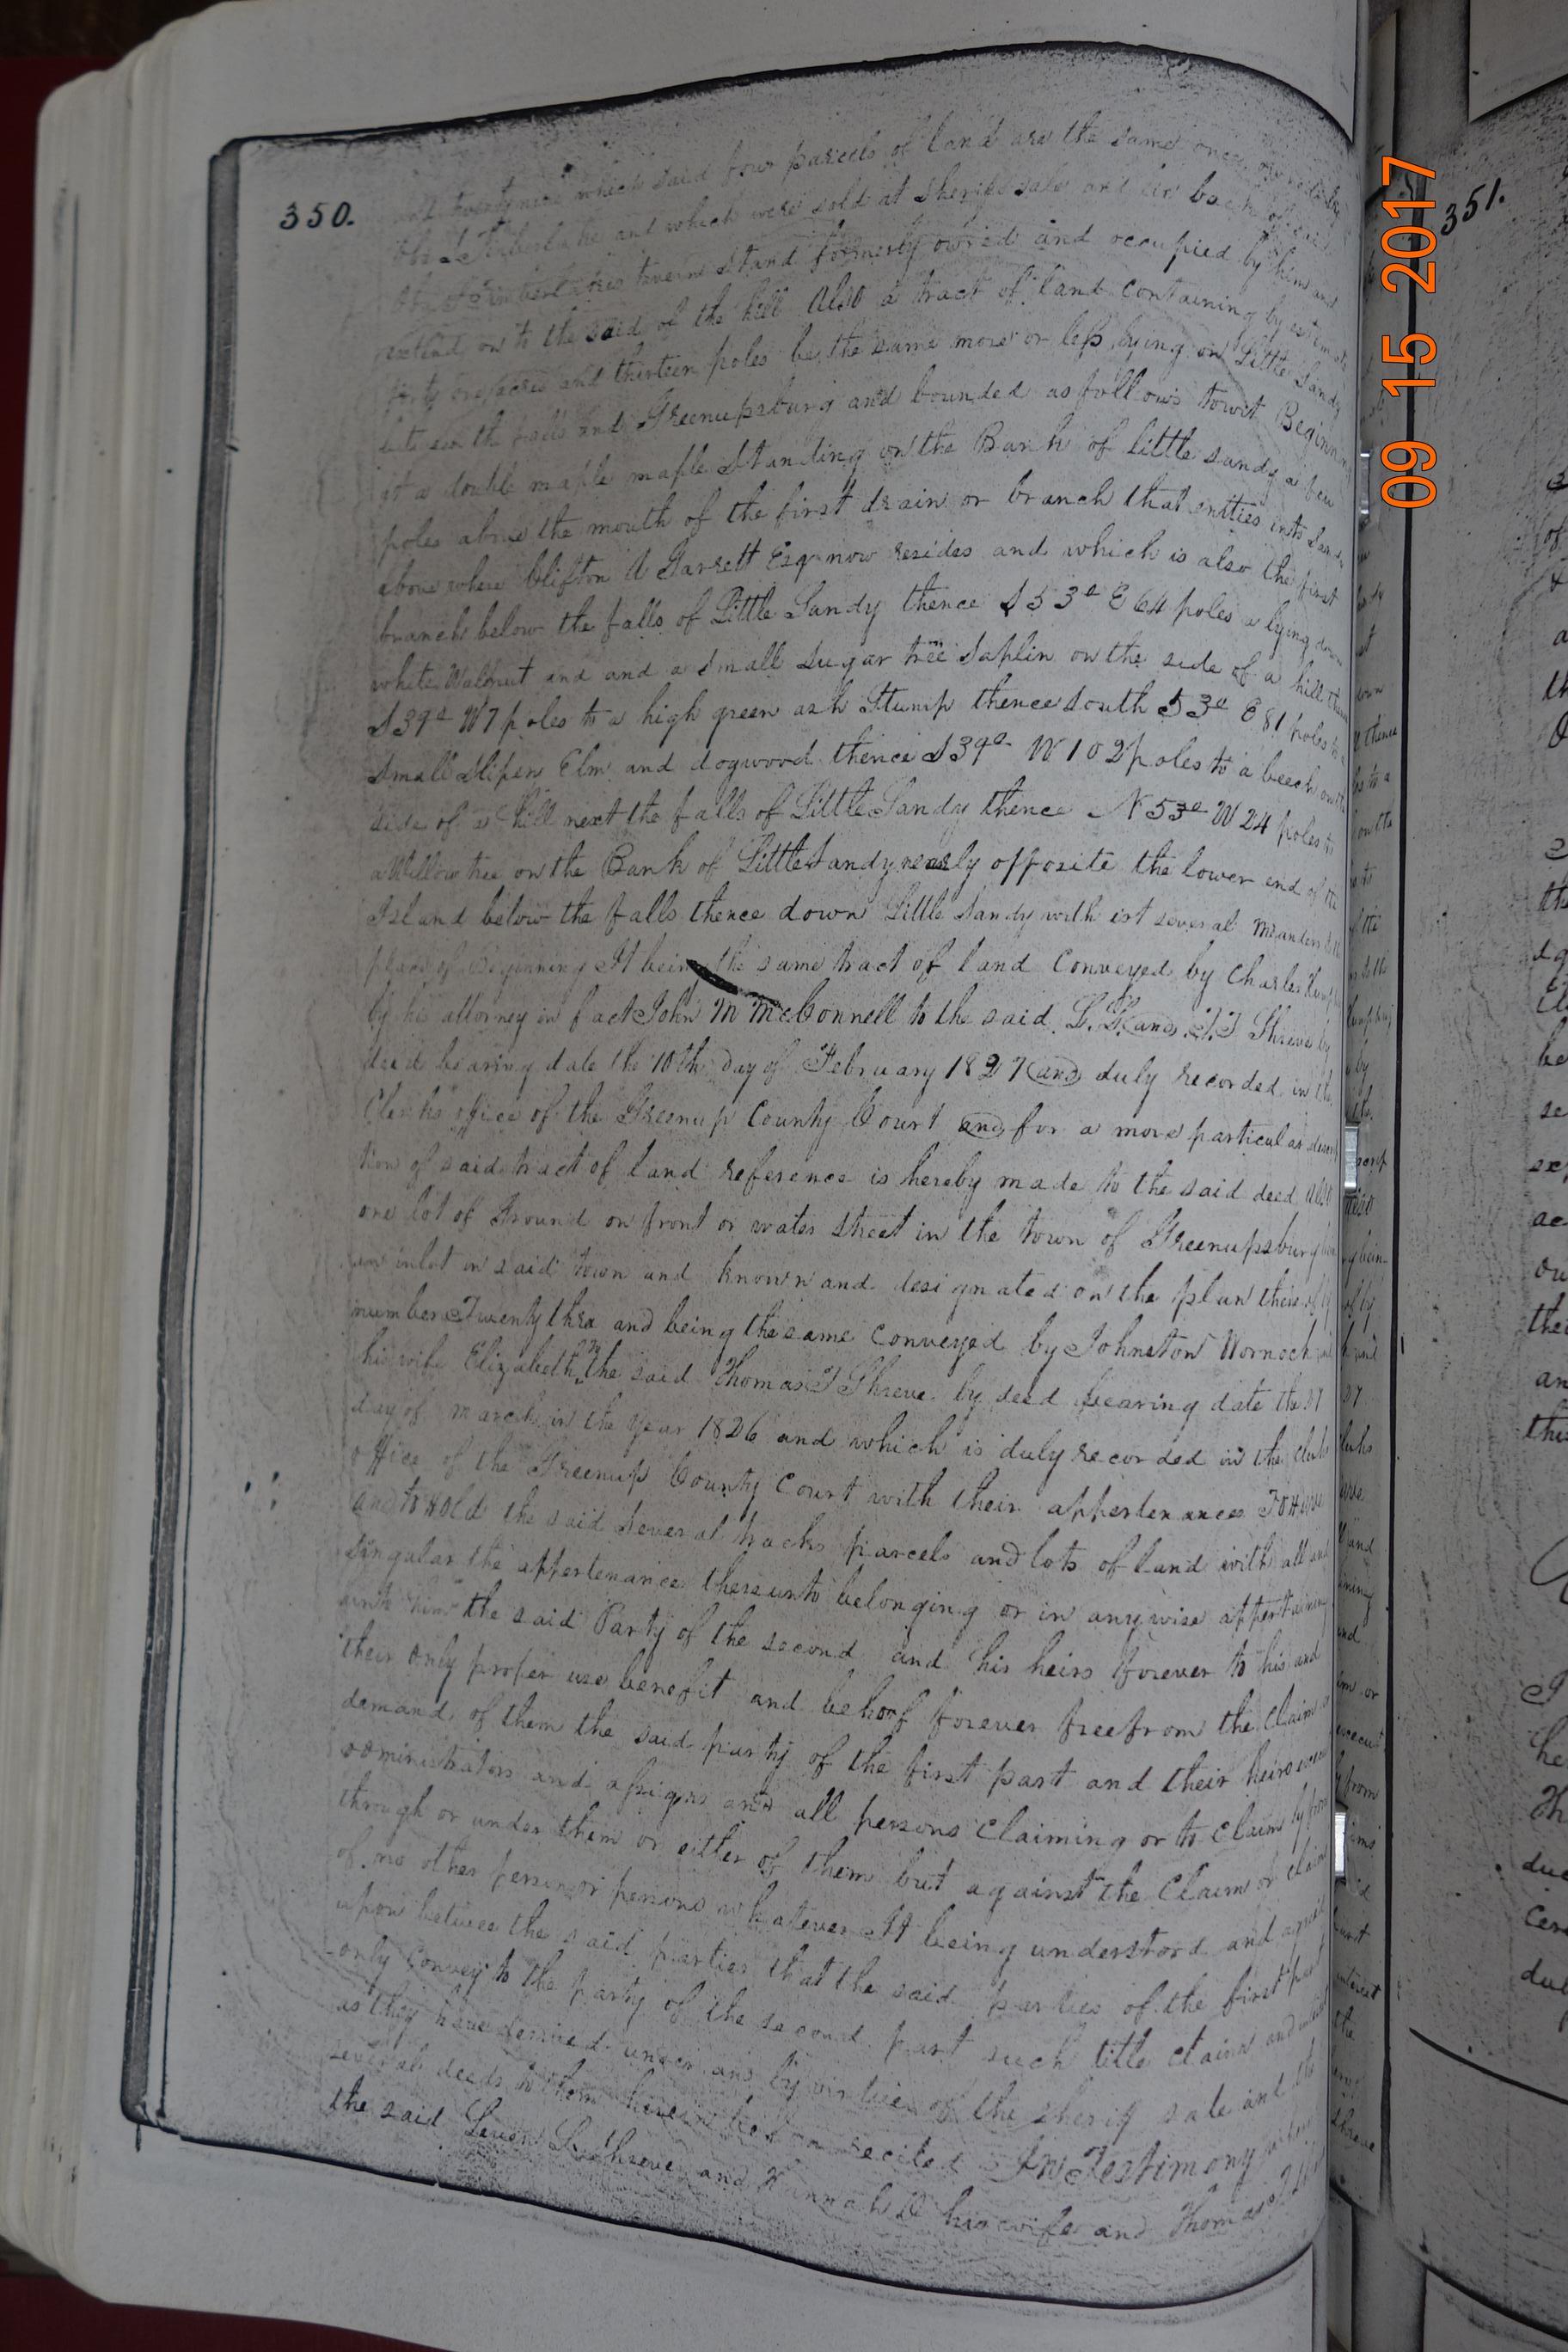 350.
which said four parcels of land are the same once owned by
and which were sold at Sheriffs sale and lie back of
tavern stand formerly owned and occupied by him and
extend on to the said of the hill Also a tract of land containing by estimate
forty one acres and thirteen poles be the same more or less lying on Little Sandy
between the falls and Greenupsburg and bounded as follows towit Beginning
at a double maple maple Standing on the Bank of little sandy a few
poles above the mouth of the first drain or branch that entties into Sandy
above where Clifton A Garrett Esq now resides and which is also the first
branch below the falls of Little Sandy thence S 53° E 64 poles a lying down
white Walnut and and a small sugar tree saplin on the side of a hill thence
S 39° W 7 poles to a high green ash Stump thence South 53° E 81 poles to a
Small Slipery Elm and dogwood thence S 39° W 102 poles to a beech on the
side of a hill next the falls of Little Sandy thence N 53° W 24 poles to
a Willow tree on the Bank of Little Sandy nearly opposite the lower end of the
Island below the falls thence down Little Sandy with ist several meanders to the
place of Beginning It being the same tract of land conveyed by Charles
by his attorney in fact John M McConnell to the said L. L. and T. T Shreve by
deed bearing date the 10th day of February 1827 and duly recorded in the
Clerks office of the Greenup County Court and for a more particular descrip
tion of said tract of land reference is hereby made to the said deed Also
one lot of Ground on front or water street in the town of Greenupsburg being
an inlot in said town and known and designated on the plan thereof by
number Twenty three and being the same conveyed by Johnston Wornock and
his wife Elizabeth to the said Thomas T Shreve by deed bearing date the 27
day of march in the year 1826 and which is duly recorded in the clerks
office of the Greenup County Court with their appertenances To Have
and to Hold the said several tracks parcels and lots of land with all and
singular the appertenances thereunto belonging or in anywise appertaining
unto him the said Party of the second and his heirs forever to his and
their only proper use benefit and behoof forever free from the Claim or
demand of them the said party of the first part and their heirs execut
administrators and assigns and all persons claiming or to claim by from
through or under them or either of them but against the Claim or claims
of no other person or persons whatever It being understood and agreed
upon between the said parties that the said parties of the first part
only convey to the party of the second part such title claim and interest
as they have derived under and by virtue of the sherif sale and the
several deeds to them herein before recited In Testimony
the said Leven L Shreve and Hannah D his wife and Thomas T
351.
09 15 2017